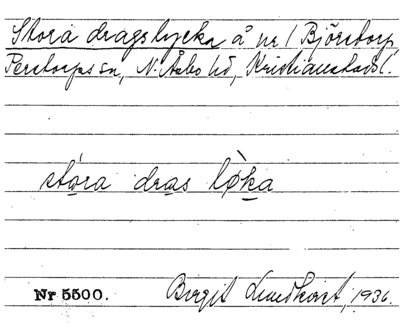 Stora dragslycka å nr 1 Björstorp,
Perstorps sn, N. Åsbo hd, Kristianstads l.
stora dras løka
Nr 5500. Birgit Lundkvist, 1936.